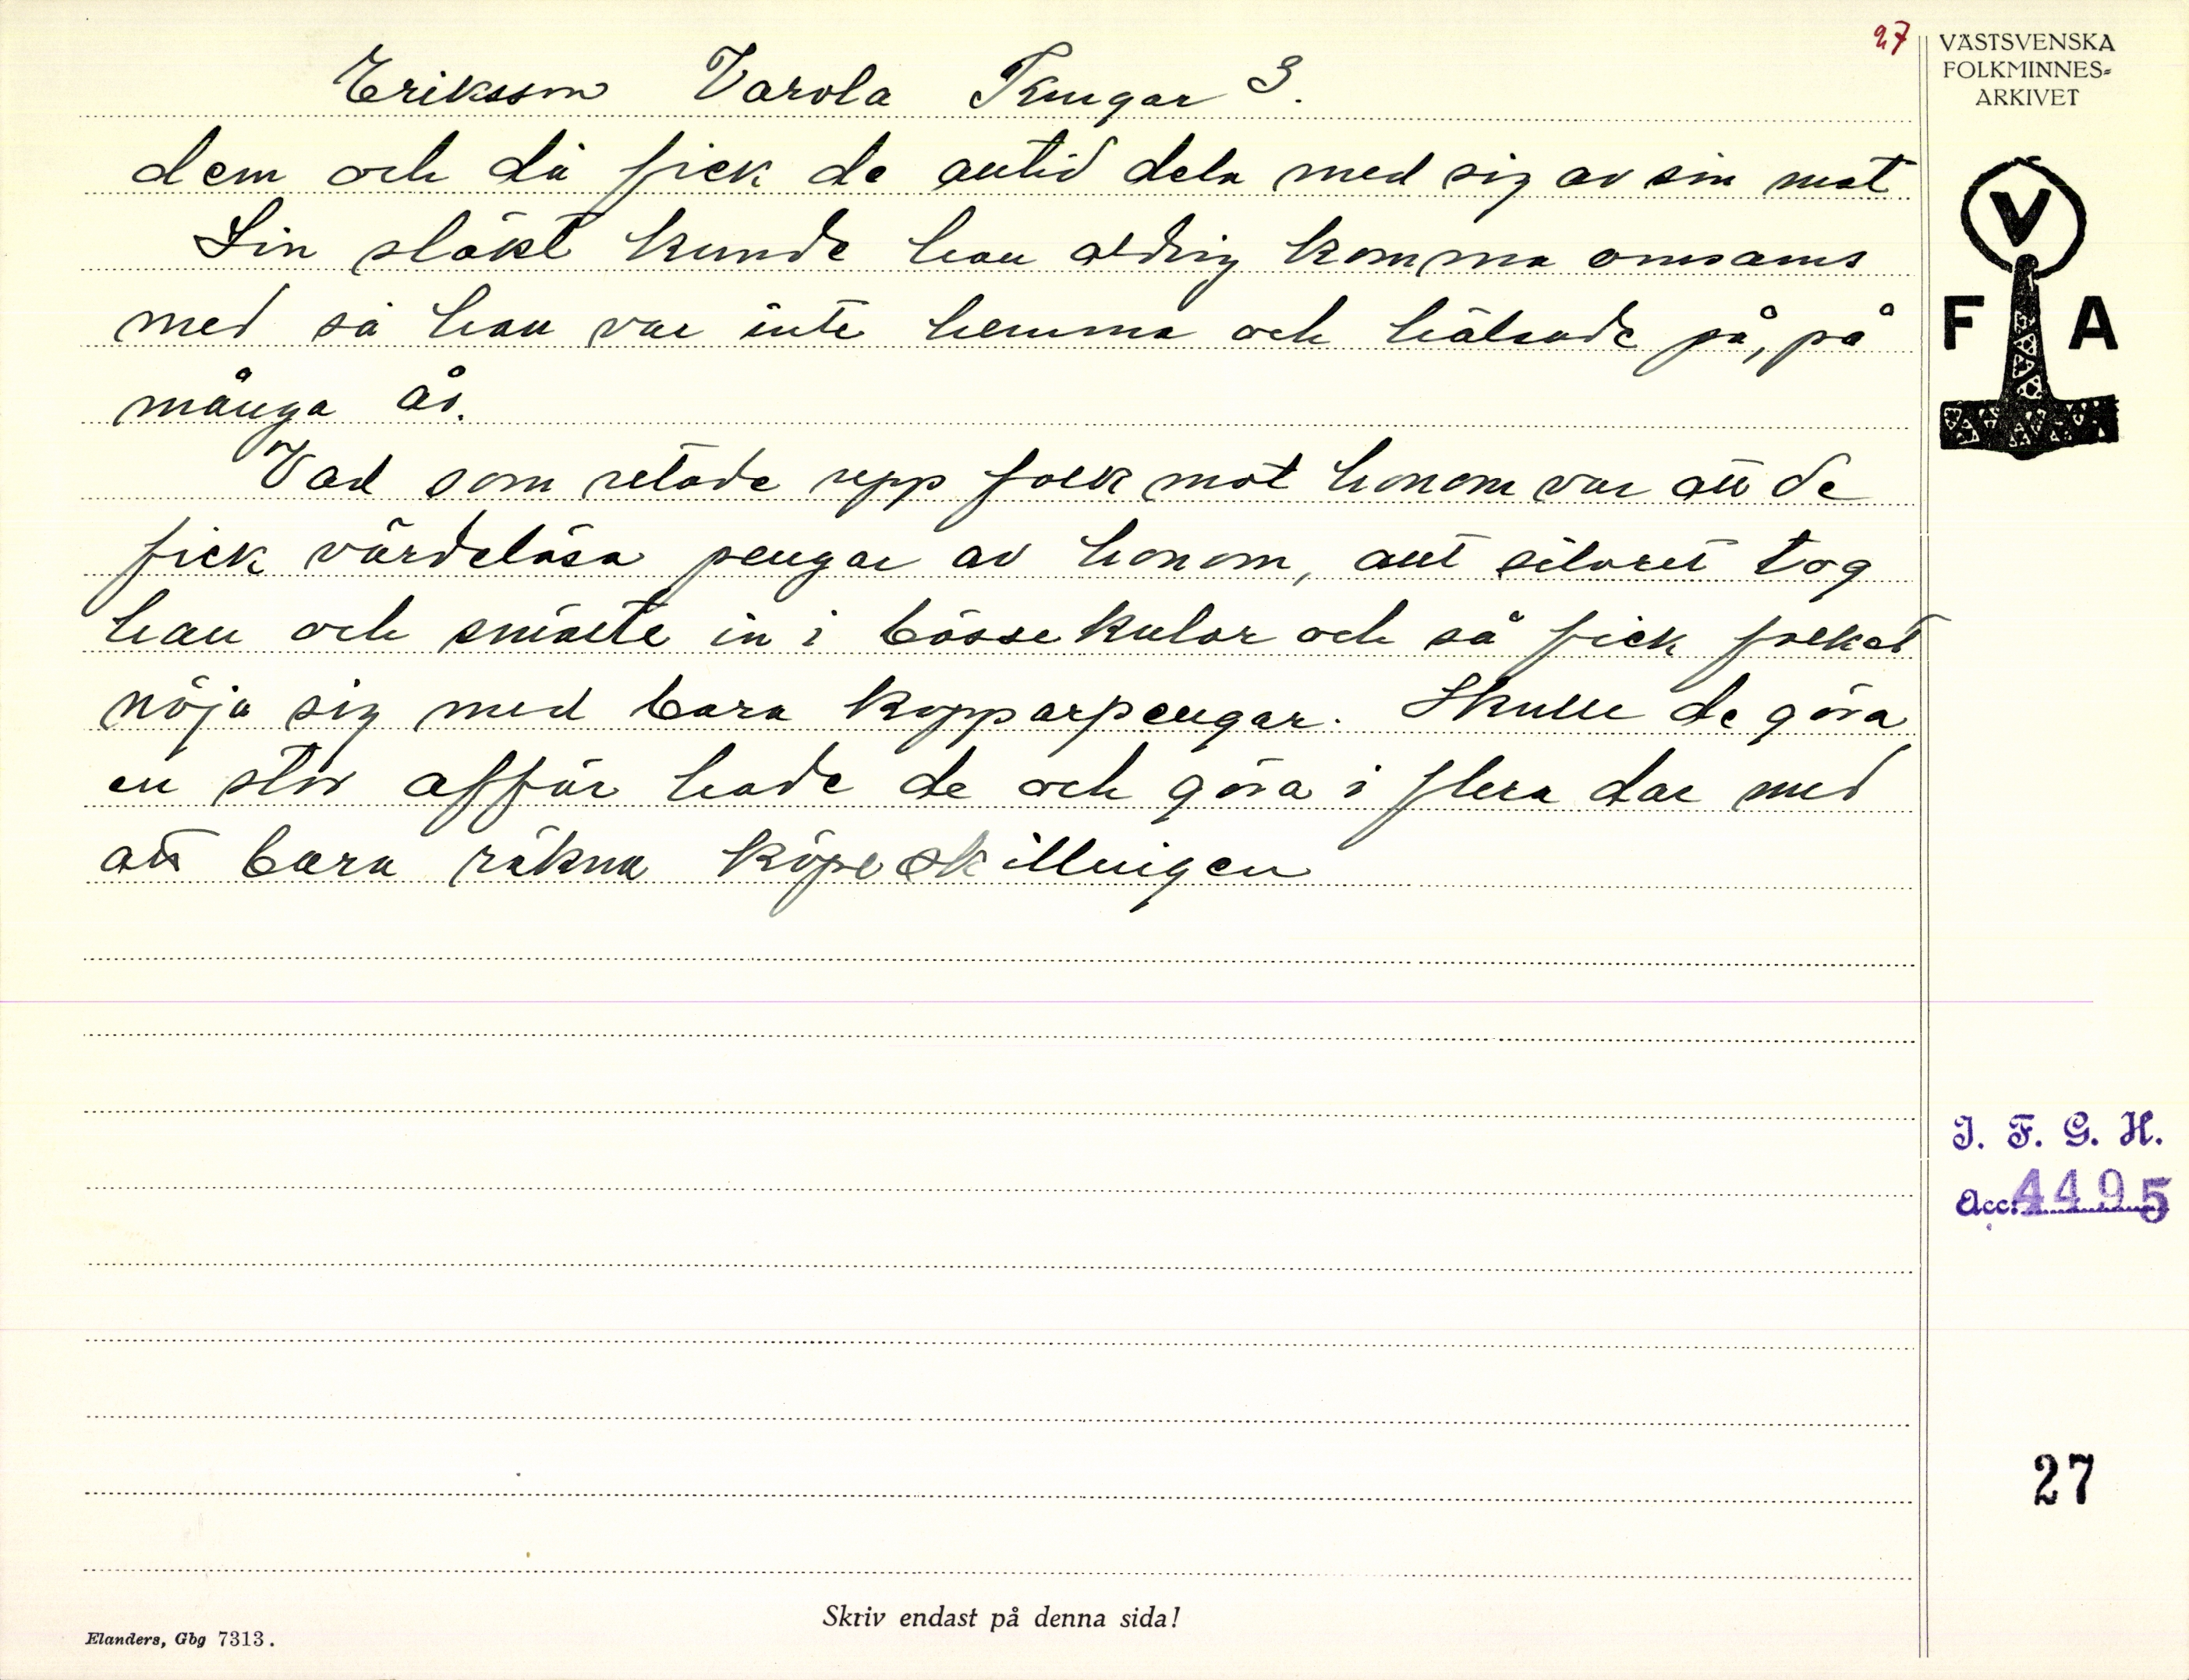 27
VÄSTSVENSKA
FOLKMINNES-
ARKIVET
Eriksson Varola Kungar 3.
dem och då fick de alltid dela med sig av sin mat
Sin släkt kunde han aldrig komma omsams
med så han var inte hemma och hälsade på, på
många år.
Vad som retade upp folk mot honom var att de
fick värdelösa pengar av honom, allt silvret tog
han och smälte in i bössekulor och så fick folket
nöja sig med bara kopparpengar. Skulle de göra
en stor affär hade de och göra i flera dar med
att bara räkna köpeskillnigen
V
F A
I. F. G. H.
Acc: 4495
27
Skriv endast på denna sida!
Elanders, Gbg 7313.